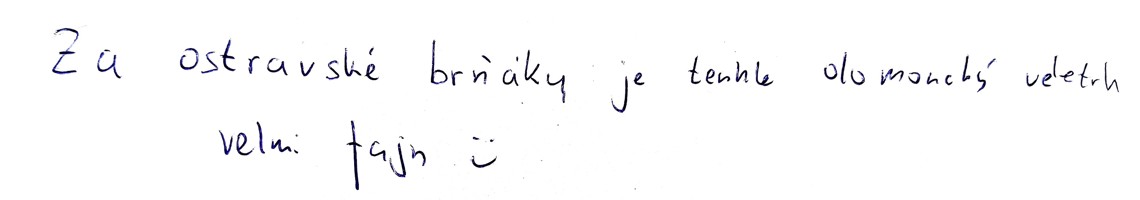 Za ostravské brňáky je tenhle olomoucký veletrh
velmi fajn :)